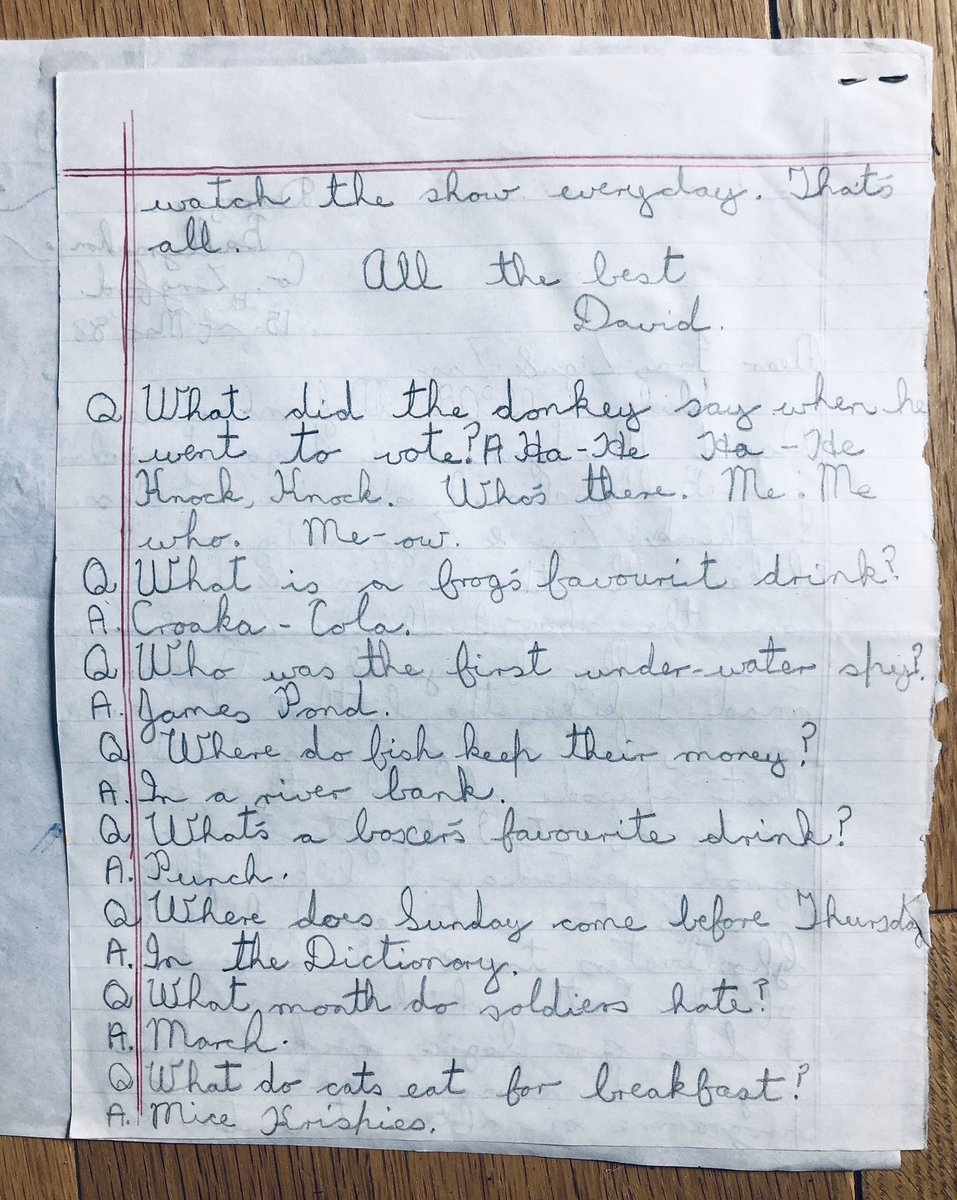 watch the show everyday. That's
all.
All the best
David.
Q What did the donkey say when he
went to vote? A Ha-He Ha-He
Knock, Knock. Who's there. Me. Me
who. Me-ow.
Q What is a frog's favourit drink?
A. Croaka-Cola.
Q Who was the first under-water spy?
A. James Pond.
Q Where do fish keep their money?
A. In a river bank.
Q What's a boxer's favourite drink?
A. Punch.
Q Where does Sunday come before Thursday
A. In the Dictionary.
Q What month do soldiers hate?
A. March.
Q What do cats eat for breakfast?
A. Mice Krispies.